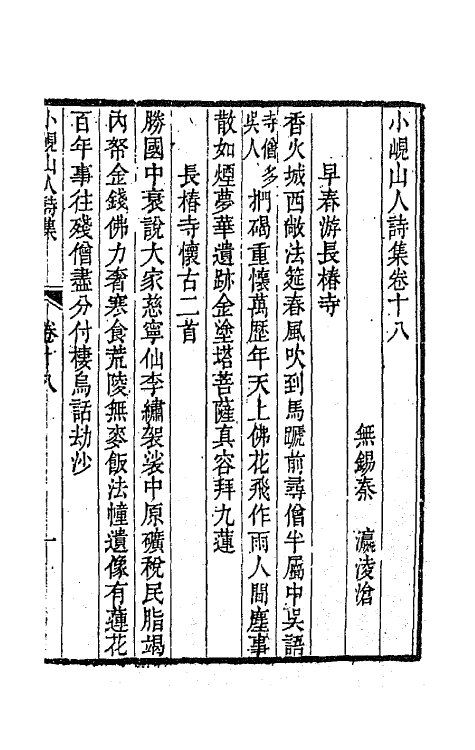 小峴山人詩集卷十八
無錫秦　瀛淩滄
早春游長椿寺
香火城西敞法筵春風吹到馬蹏前尋僧半屬中吳語
寺僧多吳人捫碣重懷萬歷年天上佛花飛作雨人間塵事
散如煙夢華遺跡金塗塔菩薩真容拜九蓮
長椿寺懷古二首
勝國中衰說大家慈寧仙李繡袈裟中原礦稅民脂竭
內帑金錢佛力奢寒食荒陵無麥飯法幢遺像有蓮花
百年事往殘僧盡分付棲烏話劫沙
小峴山人詩集
卷十八
一